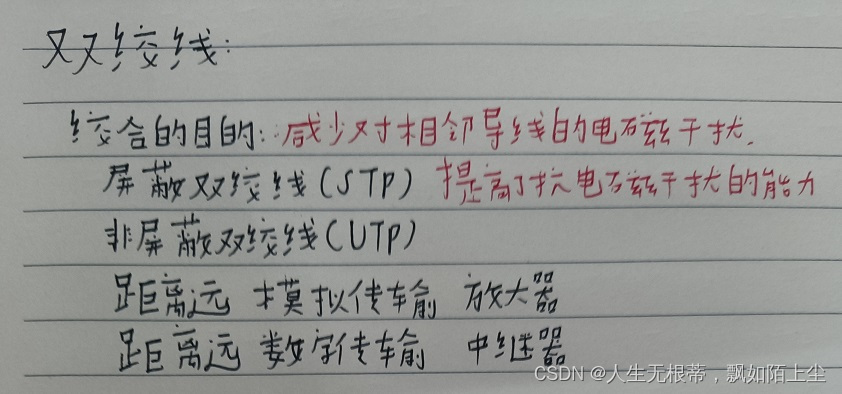 双绞线:
绞合的目的: 减少对相邻导线的电磁干扰.
屏蔽双绞线(STP) 提高了抗电磁干扰的能力
非屏蔽双绞线(UTP)
距离远 模拟传输 放大器
距离远 数字传输 中继器
CSDN @人生无根蒂，飘如陌上尘